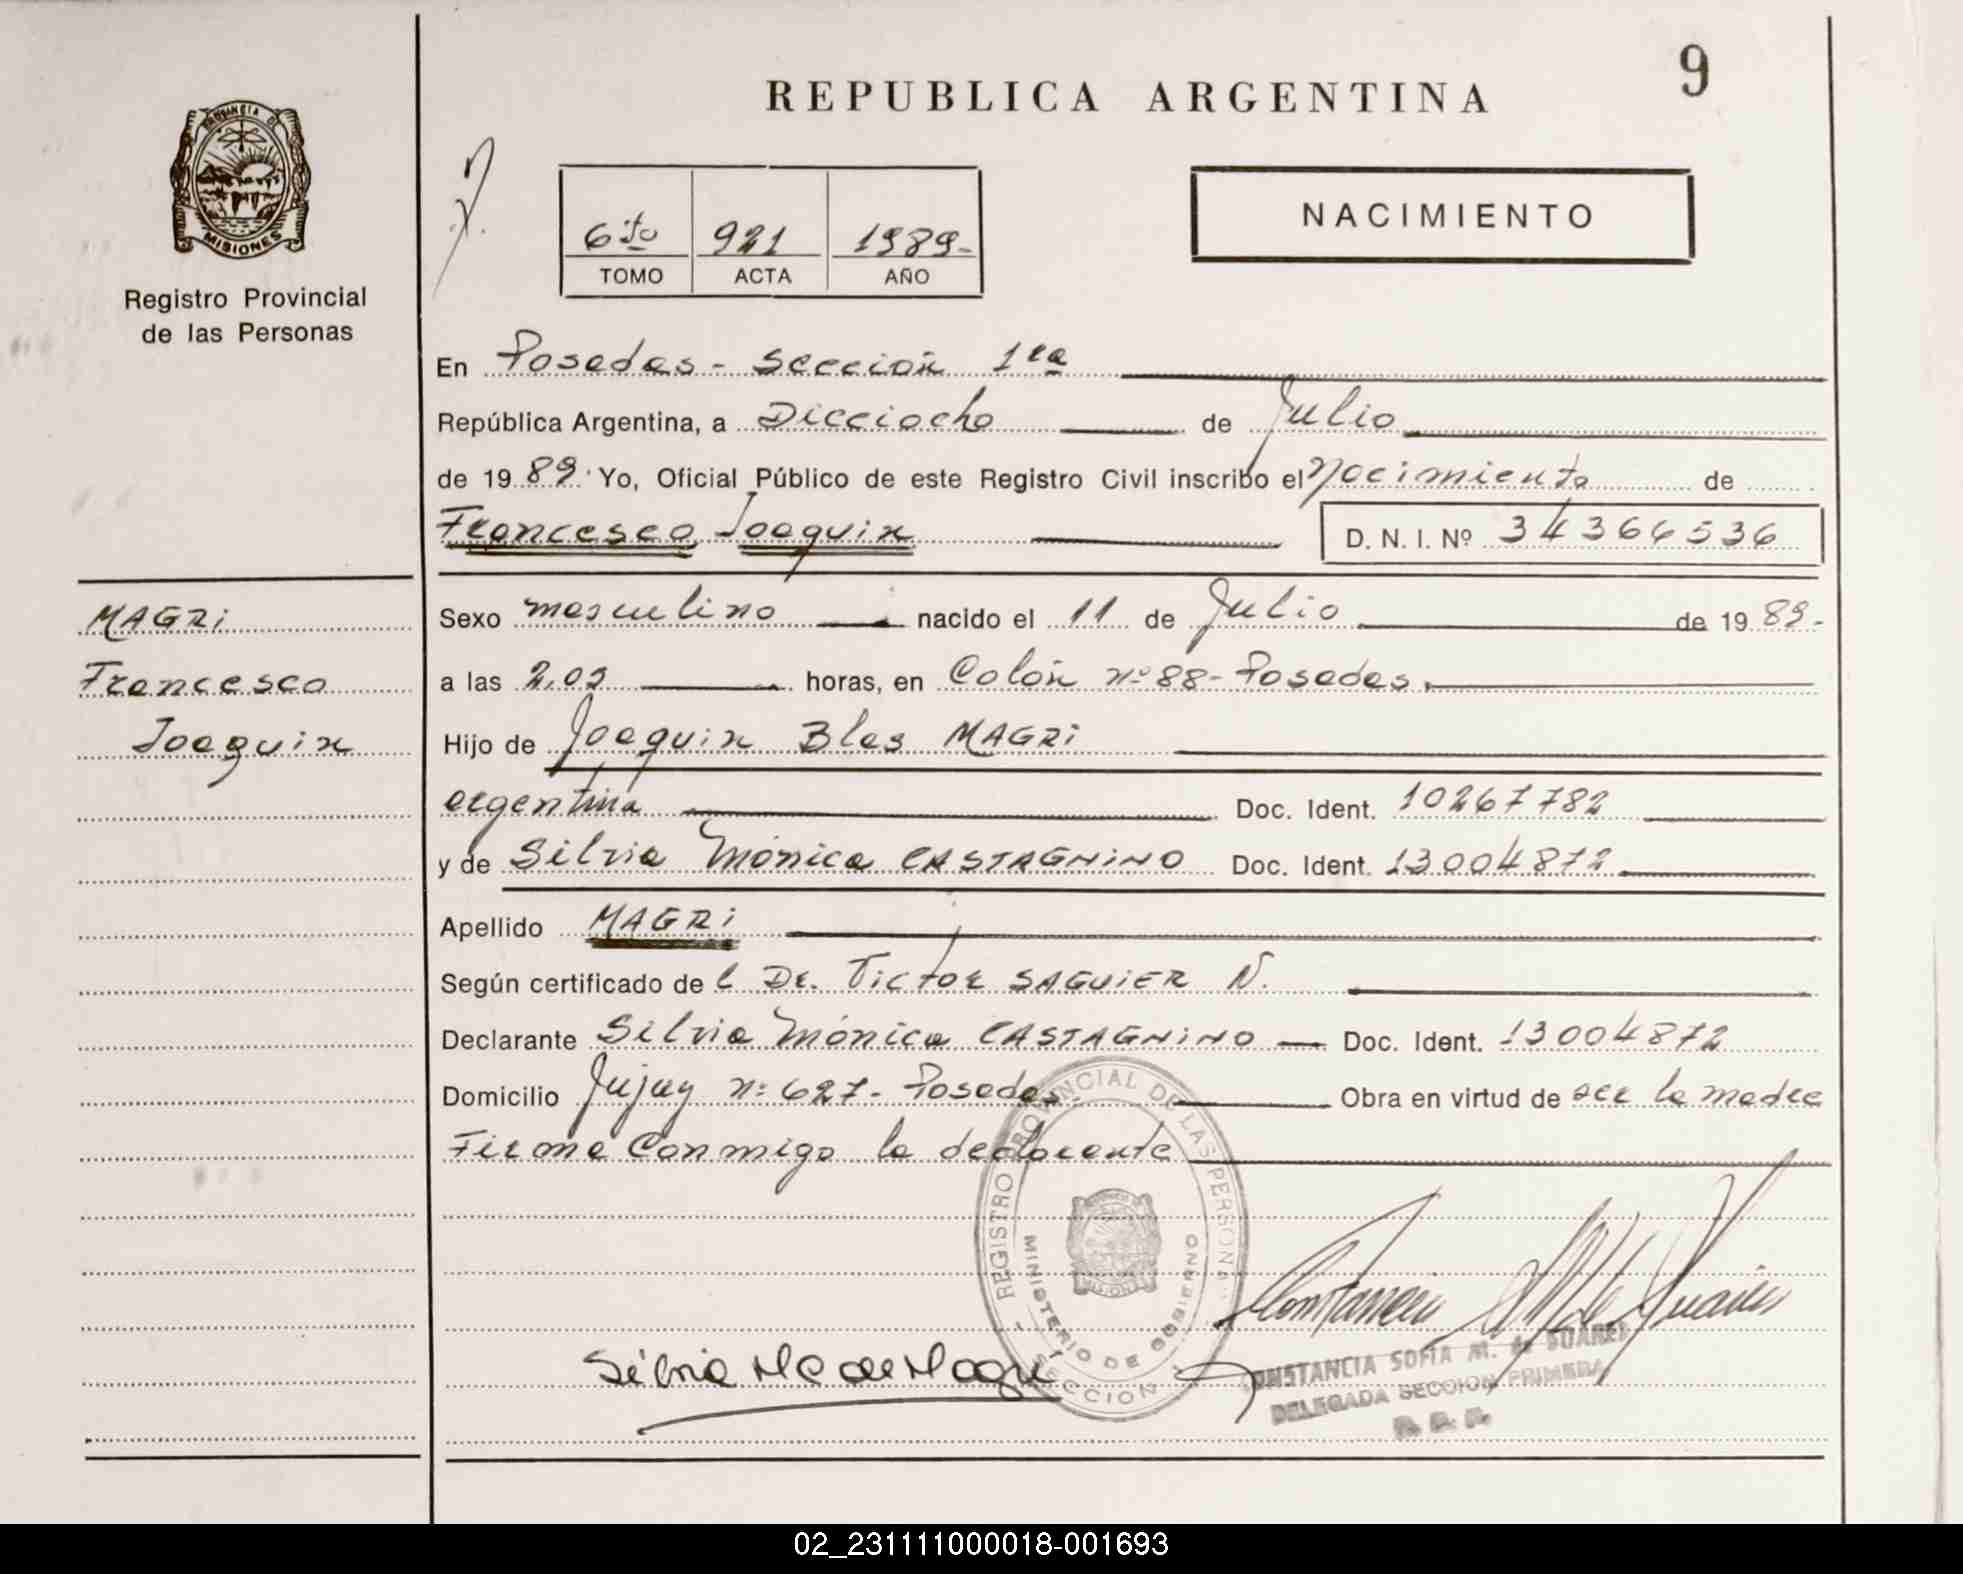 REPUBLICA ARGENTINA
9
PROVINCIA DE
MISIONES
Registro Provincial
de las Personas
6to 921 1989-
TOMO ACTA AÑO
NACIMIENTO
En Posadas - Sección 1ra
República Argentina, a Dieciocho de Julio
de 1989. Yo, Oficial Público de este Registro Civil inscribo el Nacimiento de
Francesco Joaquin D. N. I. Nº 34366536
MAGRi
Francesco
Joaquin
Sexo masculino nacido el 11 de Julio de 1989.-
a las 2,09 horas, en Colón nº 88 - Posadas.
Hijo de Joaquin Blas MAGRi
argentina Doc. Ident. 10267782
y de Silvia Mónica CASTAGNiNO Doc. Ident. 13004872
Apellido MAGRi
Según certificado del Dr. Victor SAGUiER N.
Declarante Silvia Mónica CASTAGNiNO Doc. Ident. 13004872
Domicilio Jujuy nº 627 - Posadas. Obra en virtud de ser la madre
Firma Conmigo la declarante
REGISTRO PROVINCIAL DE LAS PERSONAS
MINISTERIO DE GOBIERNO
SECCION
Silvia M C de Magri
CONSTANCIA SOFIA M. de SUAREZ
DELEGADA SECCION PRIMERA
02_231111000018-001693